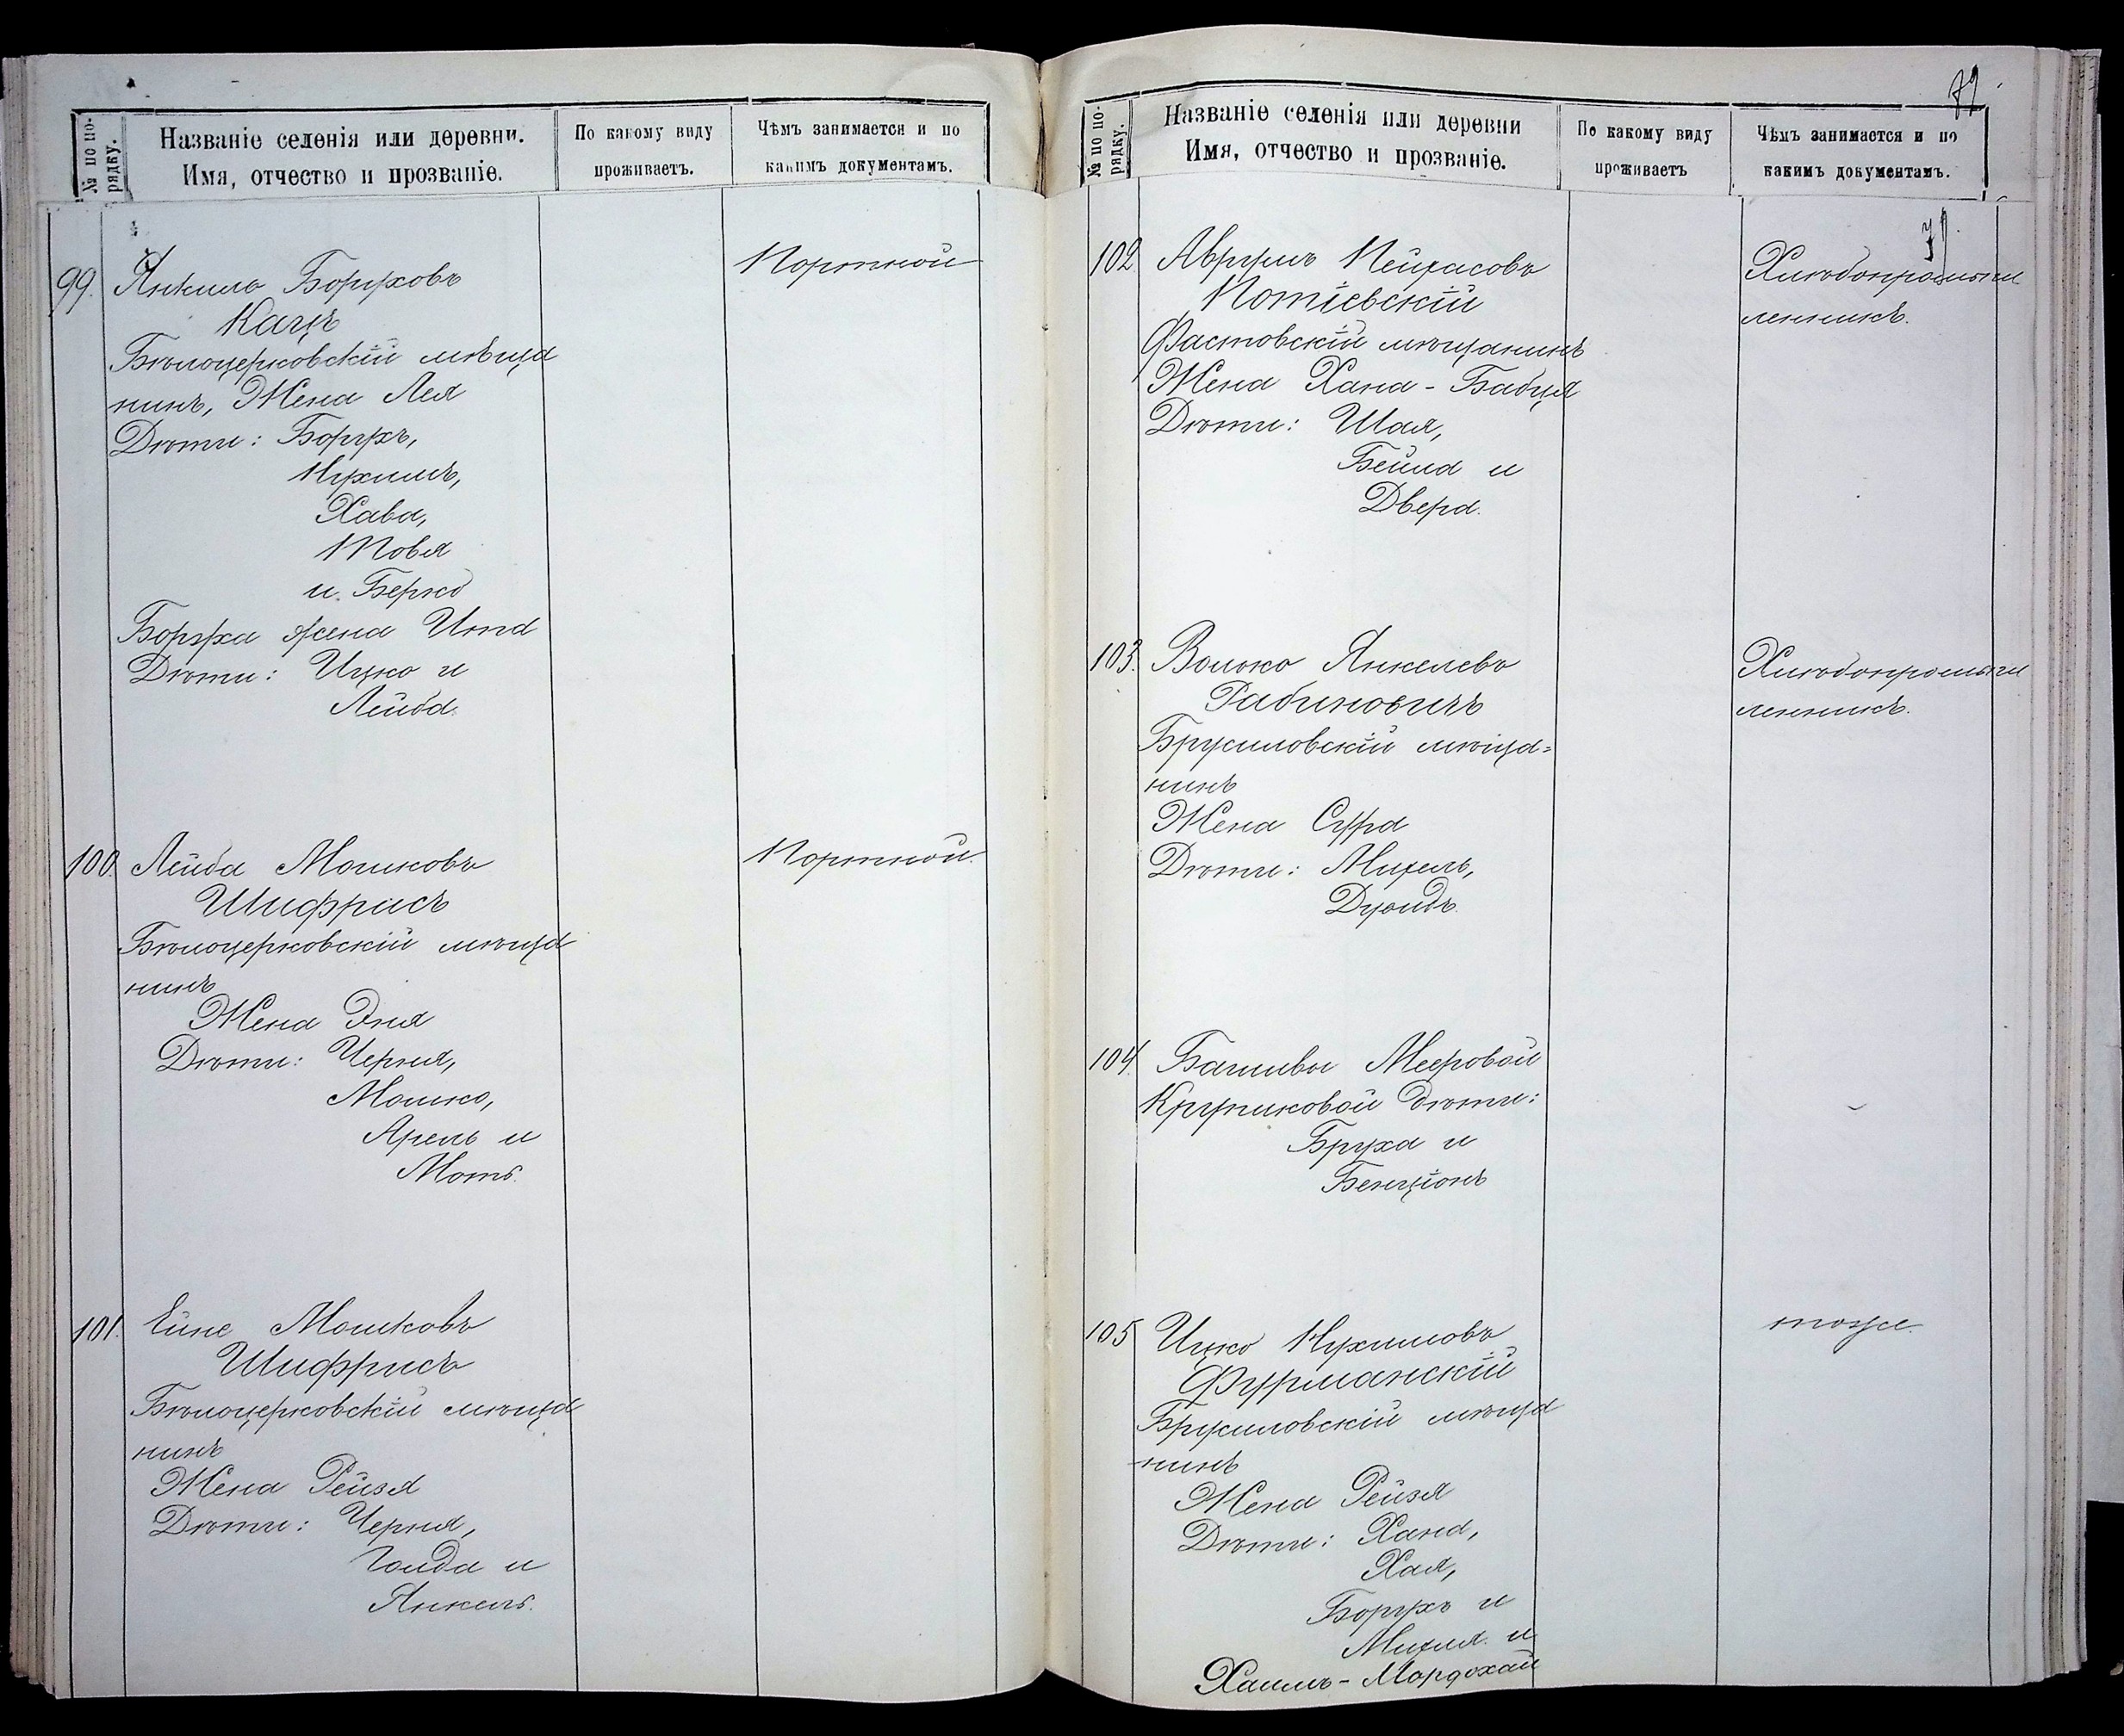 № по по-
рядку.
Названіе селенія или деревни.
Имя, отчество и прозваніе.
По какому виду
проживаетъ.
Чѣмъ занимается и по
какимъ документамъ.
99. Янкель Боруховъ
Кацъ
Бѣлоцерковскій мѣща
нинъ, Жена Лея
Дѣти: Борухъ,
Нухимъ,
Хава,
Товя
и Берко
Боруха жена Ита
Дѣти: Ицко и
Лейба.
Портной
100. Лейба Мошковъ
Шифрисъ
Бѣлоцерковскій мѣща
нинъ
Жена Эня
Дѣти: Черня,
Мошко,
Арель и
Моть.
Портной.
101. Ейне Мошковъ
Шифрисъ
Бѣлоцерковскій мѣща
нинъ
Жена Рейзя
Дѣти: Черня,
Голда и
Янкель.
№ по по-
рядку.
Названіе селенія или деревни
Имя, отчество и прозваніе.
По какому виду
проживаетъ
Чѣмъ занимается и по
какимъ документамъ.
102 Аврумъ Пейсасовъ
Потіевскій
Фастовскій мѣщанинъ
Жена Хана - Бабця
Дѣти: Шая,
Бейла и
Двера.
Хлѣбопромыш
ленникъ.
103. Волько Янкелевъ
Рабиновичъ
Брусиловскій мѣща=
нинъ
Жена Сура
Дѣти: Михель,
Дувидъ.
Хлѣбопромыш
ленникъ.
104. Башивы Мееровой
Крупниковой дѣти:
Бруха и
Бенціонъ
105 Ицко Нухимовъ
Фурманскій
Брусиловскій мѣща
нинъ
Жена Рейзя
Дѣти: Хана,
Хая,
Борухъ и
Михля и
Хаимъ - Мордохай
тоже.